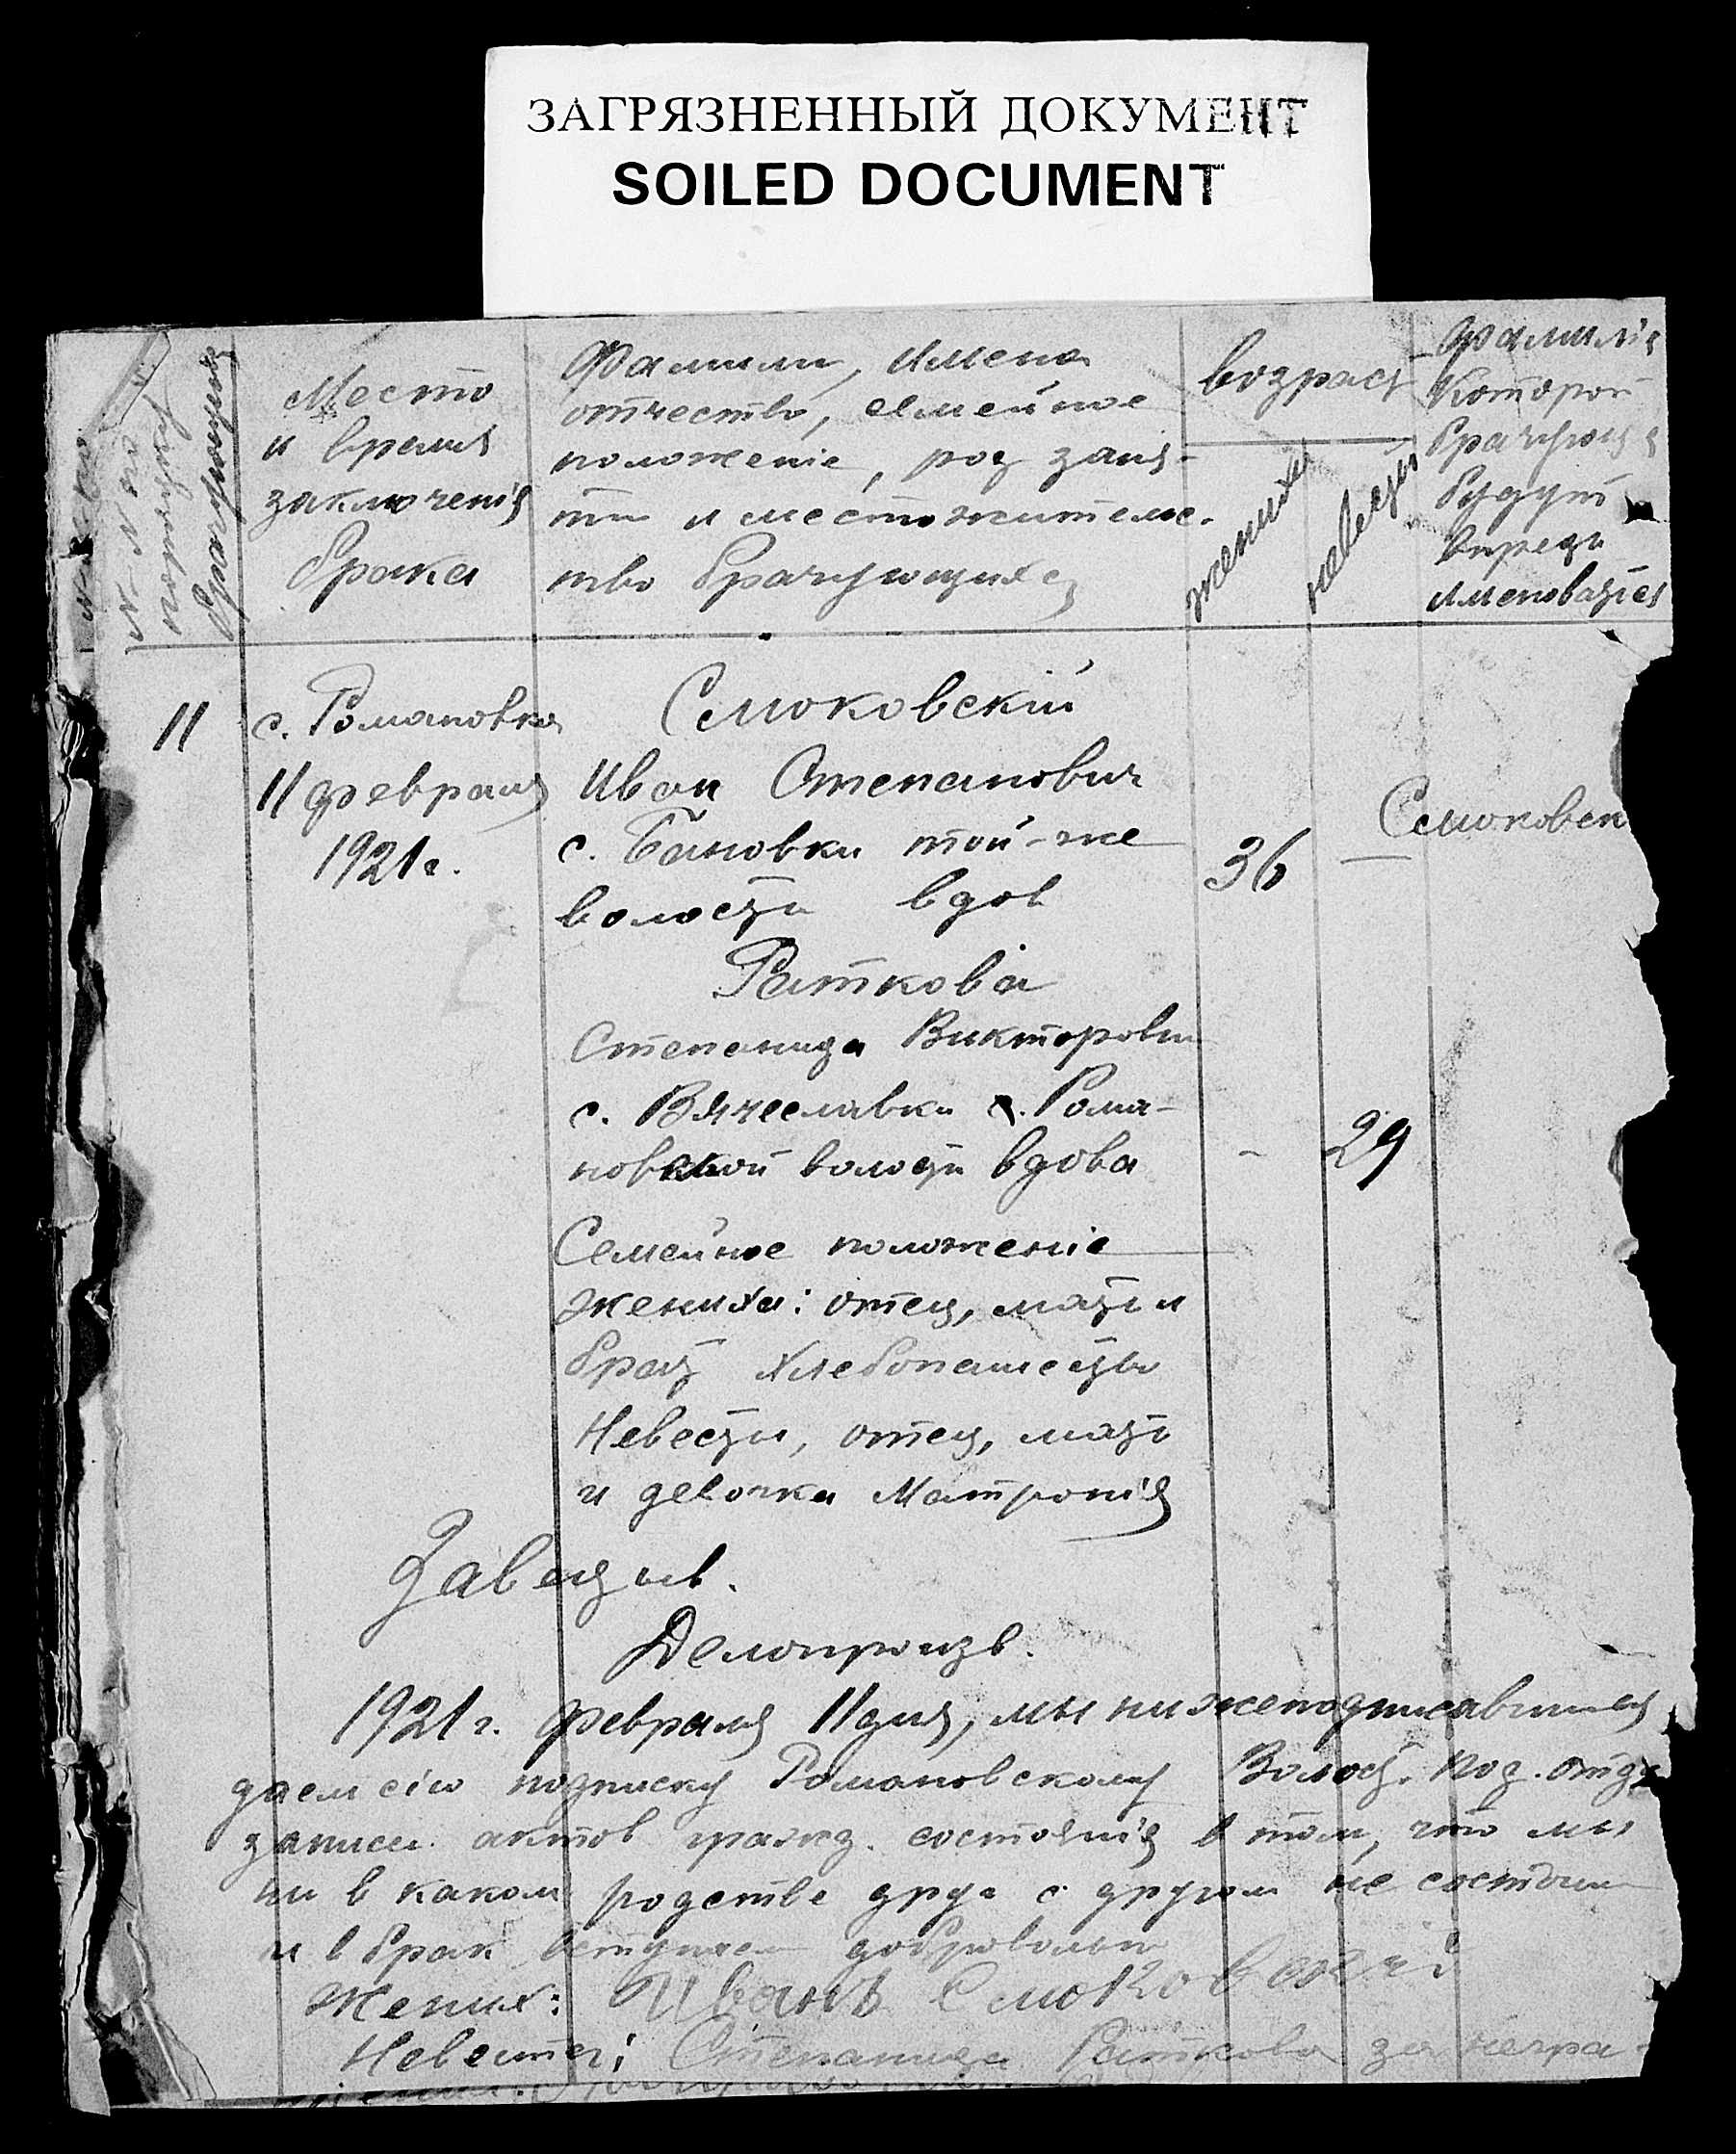 ЗАГРЯЗНЕННЫЙ ДОКУМЕНТ
SOILED DOCUMENT
N N по
порядку
брачующихся
Место
и время
заключенія
брака
Фамилии, имена
отчество, семейное
положеніе, род заня-
тий и местожительс-
тво брачующихся
возраст
жениха
невесты
Фамилія
которой
брачующ
будут
впредь
именоватся
11
с. Романовка
11 февраля
1921 г.
Смоковскій
Иван Степанович
с. Бановки той-же
волости вдов
36
—
Смоковск
Раткова
Степанида Викторовн
с. Вячеславки с. Рома-
новской волости вдова
-
29
Семейное положеніе
жениха: отец, мать и
брат хлебопашецы
Невесты, отец, мать
и девочка Матронія
Завецыв.
Делопроизв.
1921 г. февраля 11 дня, мы нижеподписавшиеся
даем сію подписку Романовскому Волост. под. отде
записи актов гражд. состоянія в том, что мы
ни в каком родстве друг с другом не состоим
и в брак вступаем добровольно
Жених: Иванъ Смоковскій
Невеста: Степанида Раткова за негра-